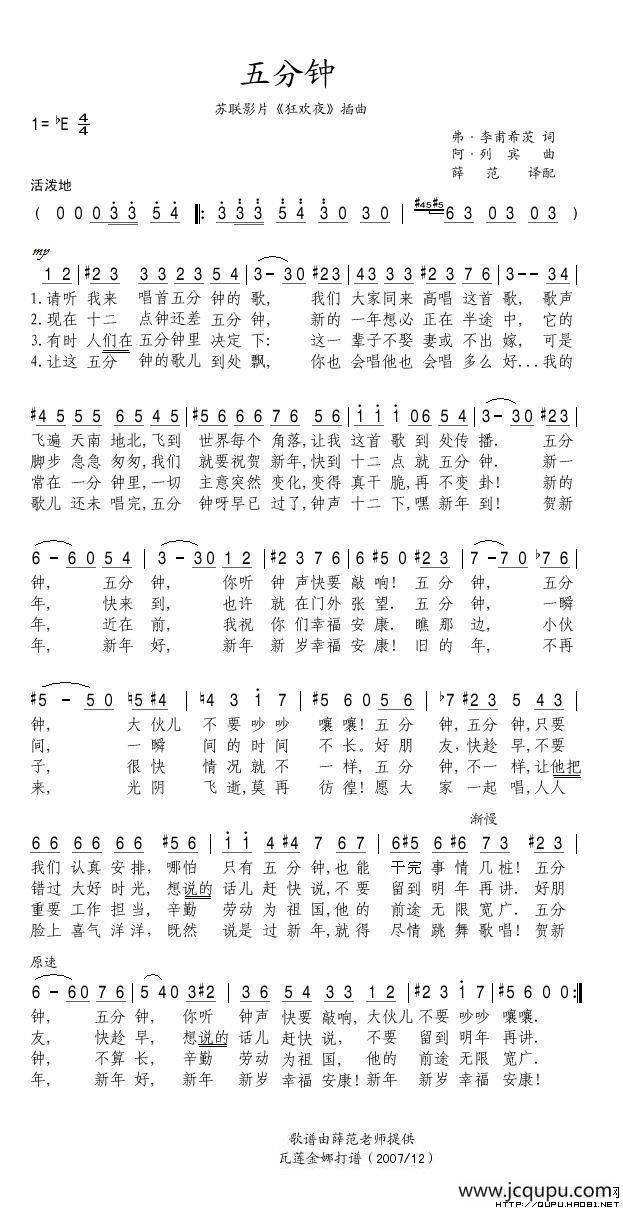 五分钟
苏联影片《狂欢夜》插曲
1=♭E 4/4
弗·李甫希茨 词
阿·列 宾 曲
薛 范 译配
活泼地
( 0 0 0 3 3 5 4 ‖: 3 3 3 5 4 3 0 3 0 | #4 5 #5 6 3 0 3 0 3 )
mp
1 2 | #2 3 3 3 2 3 5 4 | 3 - 3 0 #2 3 | 4 3 3 3 #2 3 7 6 | 3 - - 3 4 |
1.请听 我来 唱首五分 钟的 歌, 我们 大家同来 高唱 这首 歌, 歌声
2.现在 十二 点钟还差 五分 钟, 新的 一年想必 正在 半途 中, 它的
3.有时 人们在 五分钟里 决定 下: 这一 辈子不娶 妻或 不出 嫁, 可是
4.让这 五分 钟的歌儿 到处 飘, 你也 会唱他也 会唱 多么 好...我的
#4 5 5 5 6 5 4 5 | #5 6 6 6 7 6 5 6 | 1 1 1 0 6 5 4 | 3 - 3 0 #2 3 |
飞遍 天南 地北,飞到 世界每个 角落,让我 这首 歌到 处传 播. 五分
脚步 急急 匆匆,我们 就要祝贺 新年,快到 十二 点就 五分 钟. 新一
常在 一分 钟里,一切 主意突然 变化,变得 真干 脆,再 不变 卦! 新的
歌儿 还未 唱完,五分 钟呀早已 过了,钟声 十二 下,嘿 新年 到! 贺新
6 - 6 0 5 4 | 3 - 3 0 1 2 | #2 3 7 6 | 6 #5 0 #2 3 | 7 - 7 0 ♭7 6 |
钟, 五分 钟, 你听 钟 声快要 敲响! 五 分 钟, 五分
年, 快来 到, 也许 就 在门外 张 望. 五分 钟, 一瞬
年, 近在 前, 我祝 你 们幸福 安 康. 瞧那 边, 小伙
年, 新年 好, 新年 新 岁幸福 安康! 旧 的 年, 不再
#5 - 5 0 ♮5 #4 | ♮4 3 1 7 | #5 6 0 5 6 | ♭7 #2 3 5 4 3 |
钟, 大伙儿 不要 吵吵 嚷嚷! 五分 钟,五分 钟,只要
间, 一瞬 间的时间 不长。好朋 友,快趁 早,不要
子, 很快 情况就不 一样,五分 钟,不一样,让他把
来, 光阴 飞逝,莫再 彷徨!愿大 家一起 唱,人人
渐慢
6 6 6 6 6 6 #5 6 | 1 1 4 #4 7 6 7 | 6 #5 6 #6 7 3 | #2 3 |
我们 认真 安排, 哪怕 只有 五分 钟,也能 干完 事情 几桩! 五分
错过 大好 时光, 想说的 话儿 赶快 说,不要 留到 明年 再讲. 好朋
重要 工作 担当, 辛勤 劳动 为祖 国,他的 前途 无限 宽广. 五分
脸上 喜气 洋洋, 既然 说是 过新 年,就得 尽情 跳舞 歌唱! 贺新
原速
6 - 6 0 7 6 | 5 4 0 3 #2 | 3 3 5 4 3 3 | #2 3 1 2 | #2 3 1 7 | #5 6 0 0 :‖
钟, 五分 钟, 你听 钟声 快要 敲响,大伙儿 不要 吵吵 嚷嚷.
友, 快趁 早, 想说的 话儿 赶快 说, 不要 留到 明年 再讲.
钟, 不算 长, 辛勤 劳动 为祖 国, 他的 前途 无限 宽广.
年, 新年 好, 新年 新岁 幸福 安康! 新年 新岁 幸福 安康!
歌谱由薛范老师提供
瓦莲金娜打谱(2007/12)
www.jcqupu.com
HTTP://QUPU.HAO81.NET